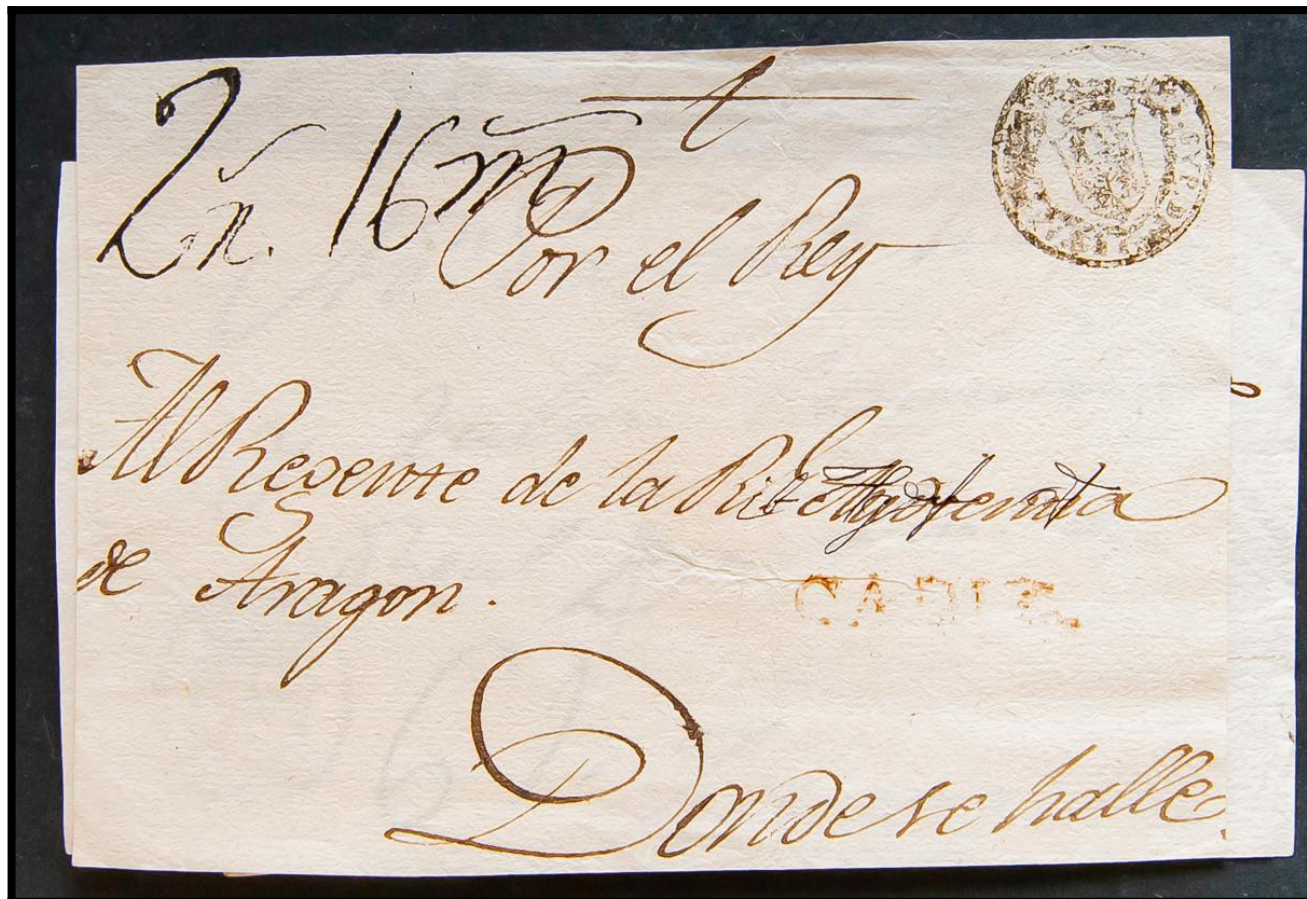 2 rn. 16 m
Por el Rey
Al Regente de la Rl
de Aragon.
CADIZ.
Donde se halle